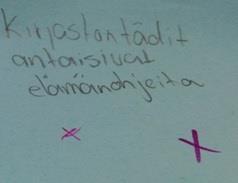 Kirjastontädit
antaisivat
elämänohjeita